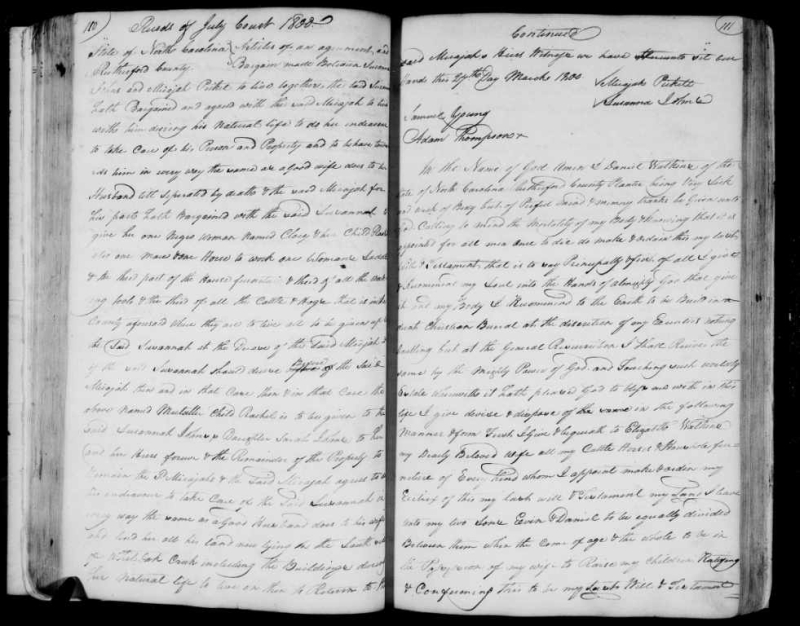 110
Records of July Court 1800
State of North Carolina Articles of an agreement, and
Rutherford County. Bargain made Between Susanna
and Micajah Picket to live together, the said Susanna
hath Bargained and agreed with the said Micajah to live
with him during his Natural life to do her indeavour
to take Care of his Person and Property and to behave towa
rds him in every way the same as a good wife does to her
Husband till Seperated by death & the said Micajah for
his parts hath Bargained with the said Susannah to
give her one Negro Woman Named & her Child Rachel
also one Mare & one Horse to work one Womans Saddle
& the third part of the House furniture & third of all the
tools & the third of all the Cattle & Hogs that is in the
County aforesaid where they are to live all to be given
the Said Susannah at the Decease of the Said Micajah &
if the said Susannah should decease Before the Said
Micajah then and in that Case then & in that Case the
above Named Mulatto Child Rachel is to be given to the
said Susannah Daughter Sarah to her
and her Heirs forever & the Remainder of the Property to
Remain the Sd Micajahs & the Said Micajah agrees to do
his indeavour to take Care of the Said Susannah in
every way the same as a Good Husband does to his wife
and lend her all his land now lying on the South side
of Creek including the Buildings during
her Natural life to live on then to Return to the
Continued
111
said Micajahs Heirs Witness we have Hereunto Set our
hands this 27th Day March 1800
Micajah Pickett
Susanna
Samuel Young
Adam Thompson
In the Name of God Amen I Daniel Watkins of the
State of North Carolina Rutherford County Planter being Very Sick
and weak of Body but of Perfect mind & memory thanks be Given unto
God Calling to mind the Mortality of my Body & Knowing that it is
appointed for all men once to die do make & ordain this my last
will & Testament that is to say Principally & first of all I give
& Recommend my Soul into the Hands of almighty God that give
it and my Body I Recommend to the Earth to be Buried in a
decent Christian Burial at the discretion of my Executors nothing
doubting but at the General Resurrection I Shall Receive the
same by the Mighty Power of God and Touching such worldly
Estate wherewith it hath pleased God to bless me with in this
life I give devise & dispose of the same in the following
Manner & form First I give & bequeath to Elizabeth Watkins
my Dearly Beloved wife all my Cattle Horses & Household fur=
niture of Every Kind whom I appoint make & orden my
Exectrix of this my last will & Testament my Land I leave
unto my two Sons Evin & Daniel to be equally divided
Between them when the Come of age & the whole to be in
the Possession of my wife to Raise my children Ratifying
& Confirming this to be my Last Will & Testament